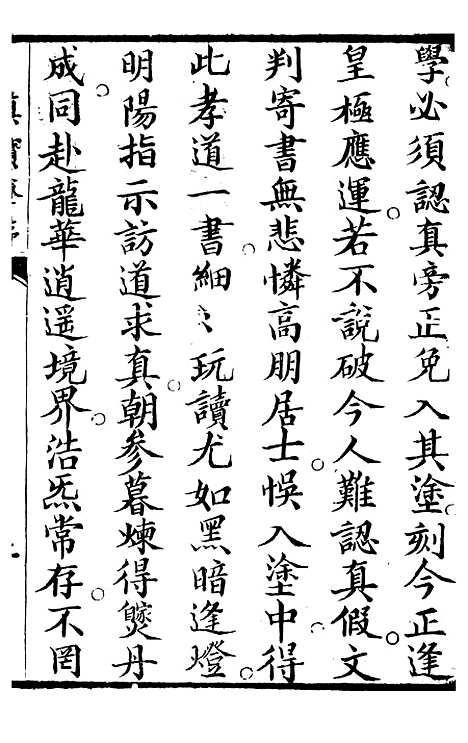 學必須認真旁正免入其塗刻今正逢
皇極應運。若不說破今人難認真假。文
判寄書無悲憐高朋居士。悞入塗中。得
此孝道一書。細〻玩讀尤如黑暗逢燈。
明陽指示訪道求真。朝參暮煉得㷫丹
成。同赴龍華逍遥境界。浩炁常存。不罔